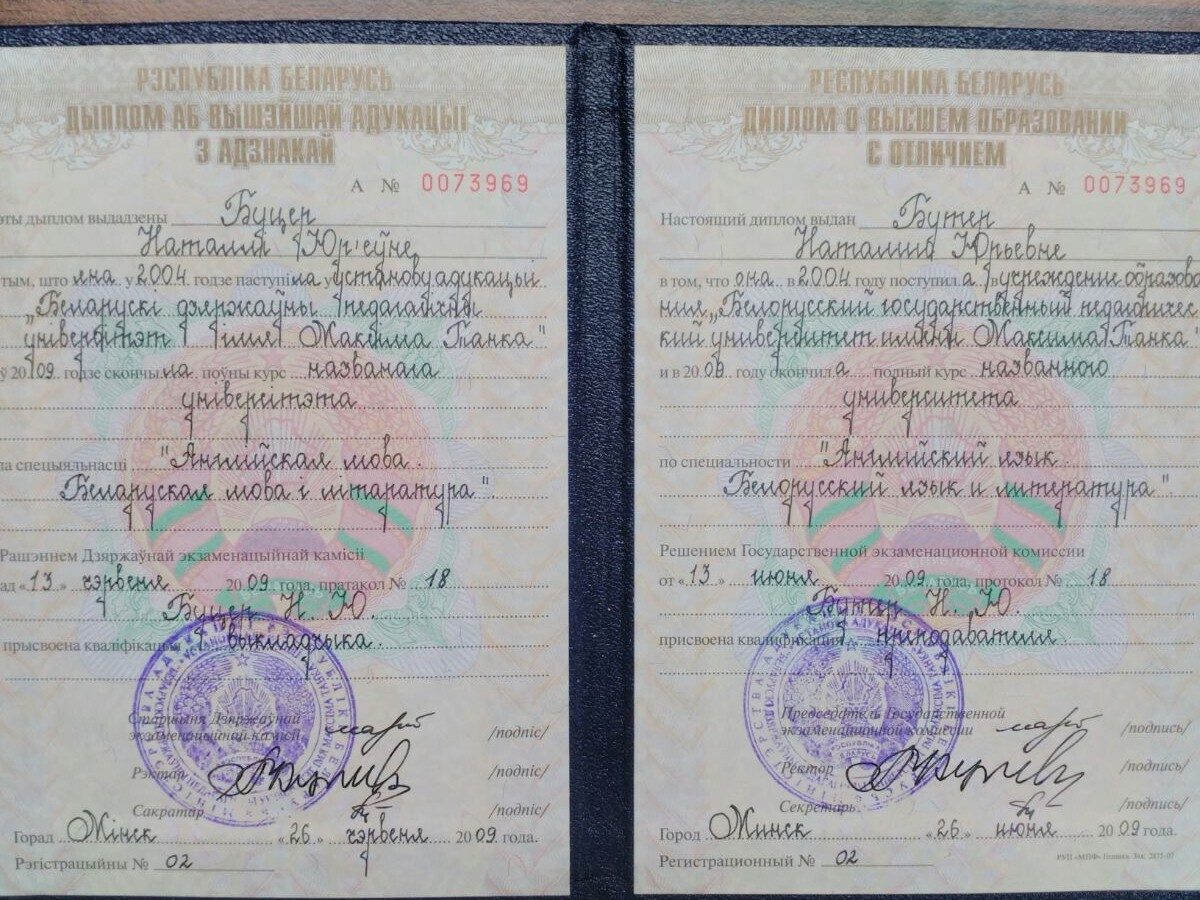 РЭСПУБЛІКА БЕЛАРУСЬ
ДЫПЛОМ АБ ВЫШЭЙШАЙ АДУКАЦЫІ
З АДЗНАКАЙ
А № 0073969
эты дыплом выдадзены Буцер
Наталіі Юр'еўне
тым, што яна у 2004 годзе наступіла у установу адукацыі
„Беларускі дзяржаўны педагагічны
універсітэт імя Максіма Танка"
ў 2009 годзе скончыла поўны курс названага
універсітэта
па спецыяльнасці "Английская мова.
Беларуская мова і літаратура".
Рашэннем Дзяржаўнай экзаменацыйнай камісіі
ад «13» чэрвеня 2009 года, пратакол № 18
Буцер Н. Ю.
прысвоена квалификацыя выкладчыка.
Старшыня Дзяржаўнай
экзаменацыйнай камісіі /подпіс/
Рэктар /подпіс/
Сакратар /подпіс/
Горад Мінск «26» чэрвеня 2009 года.
Рэгістрацыйны № 02
РЕСПУБЛИКА БЕЛАРУСЬ
ДИПЛОМ О ВЫСШЕМ ОБРАЗОВАНИИ
С ОТЛИЧИЕМ
А № 0073969
Настоящий диплом выдан Бутер
Наталии Юрьевне
в том, что она в 2004 году поступила в учреждение образова
ния „Белорусский государственный педагогичес
кий университет имени Максима Танка"
и в 2009 году окончила полный курс названного
университета
по специальности "Английский язык.
Белорусский язык и литература".
Решением Государственной экзаменационной комиссии
от «13» июня 2009 года, протокол № 18
Бутер Н. Ю.
присвоена квалификация преподавателя
Председатель Государственной
экзаменационной комиссии /подпись/
Ректор /подпись/
Секретарь /подпись/
Город Минск «26» июня 2009 года.
Регистрационный № 02